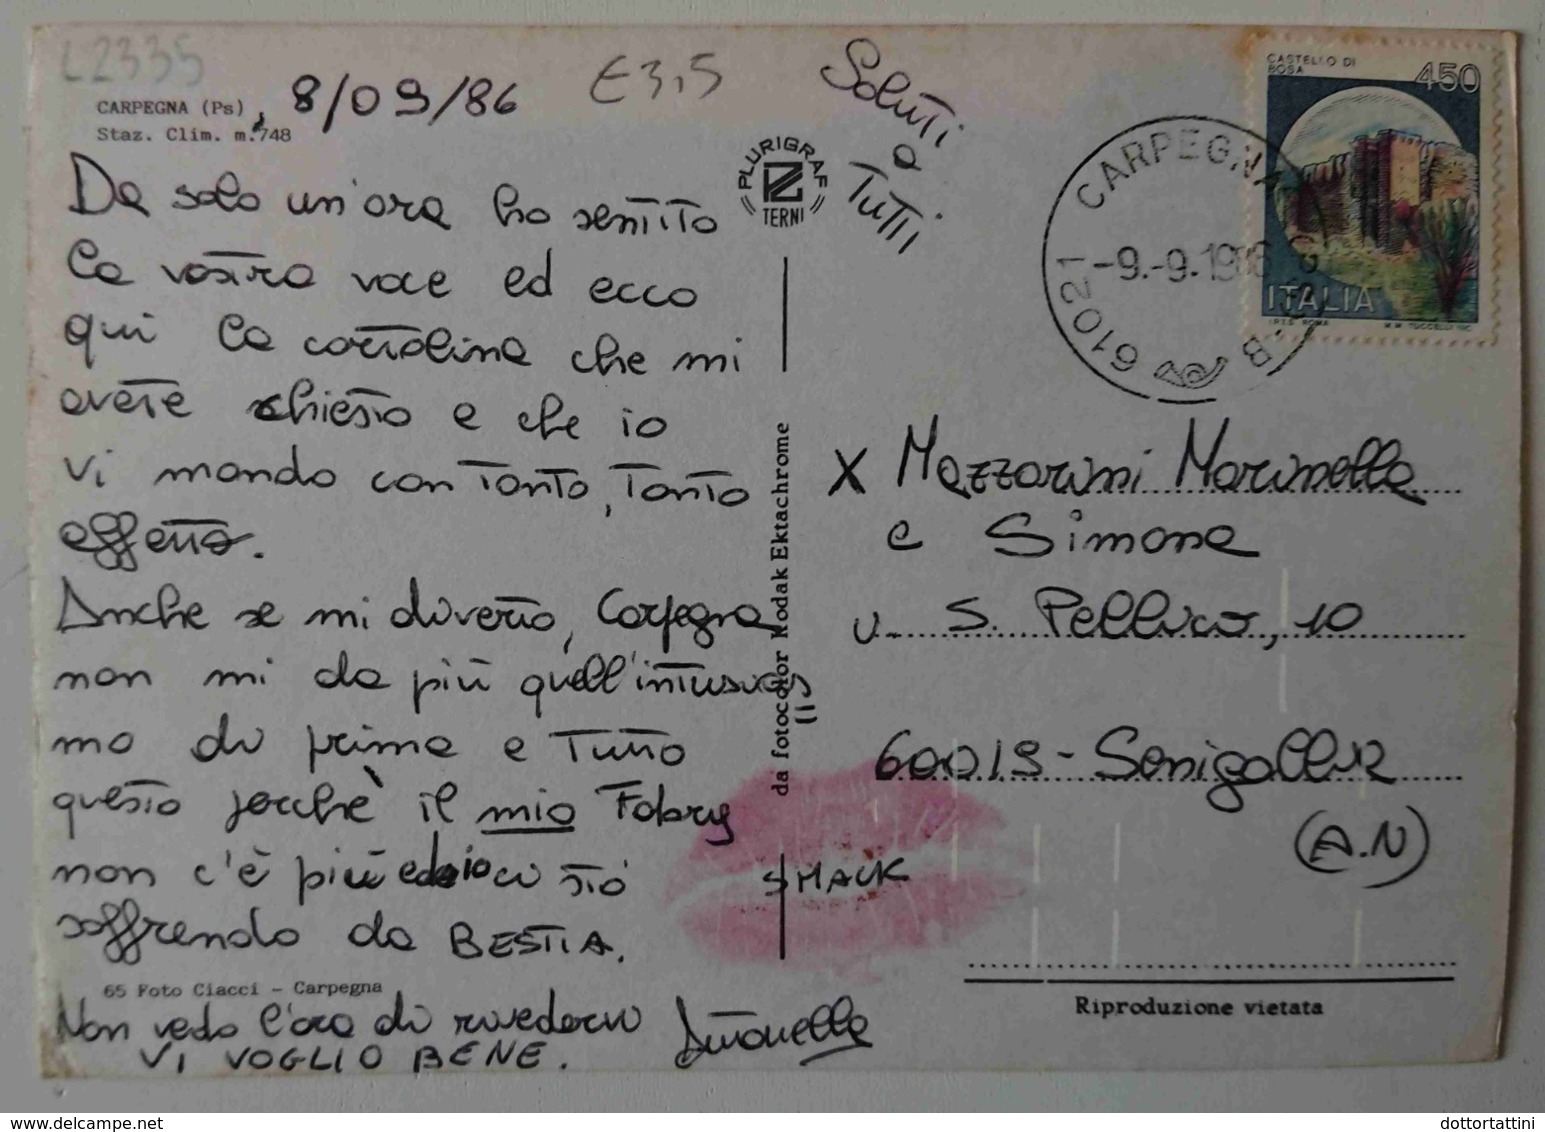 L2335
CARPEGNA (Ps)
Staz. Clim. m. 748
, 8/09/86
€3,5
Saluti
a
Tutti
PLURIGRAF
TERNI
CASTELLO DI
BOSA
450
ITALIA
I.P.Z.S. ROMA
61021 CARPEGNA
-9.-9.19
Da solo un'ora ho sentito
la vostra voce ed ecco
qui la cartolina che mi
avete chiesto e che io
vi mando con tanto, tanto
affetto.
Anche se mi diverto, Carpegna
non mi da più quell'intusias
mo di prima e tutto
questo perchè il mio Fabry
non c'è più ed io ci sto
soffrendo da BESTIA.
65 Foto Ciacci - Carpegna
Non vedo l'ora di rivedervi
VI VOGLIO BENE.
Antonella
SMACK
da fotocolor Kodak Ektachrome
X Mazzarini Marinella
e Simona
v. S. Pellico, 10
60019 - Senigallia
(A.N)
Riproduzione vietata
dottortattini